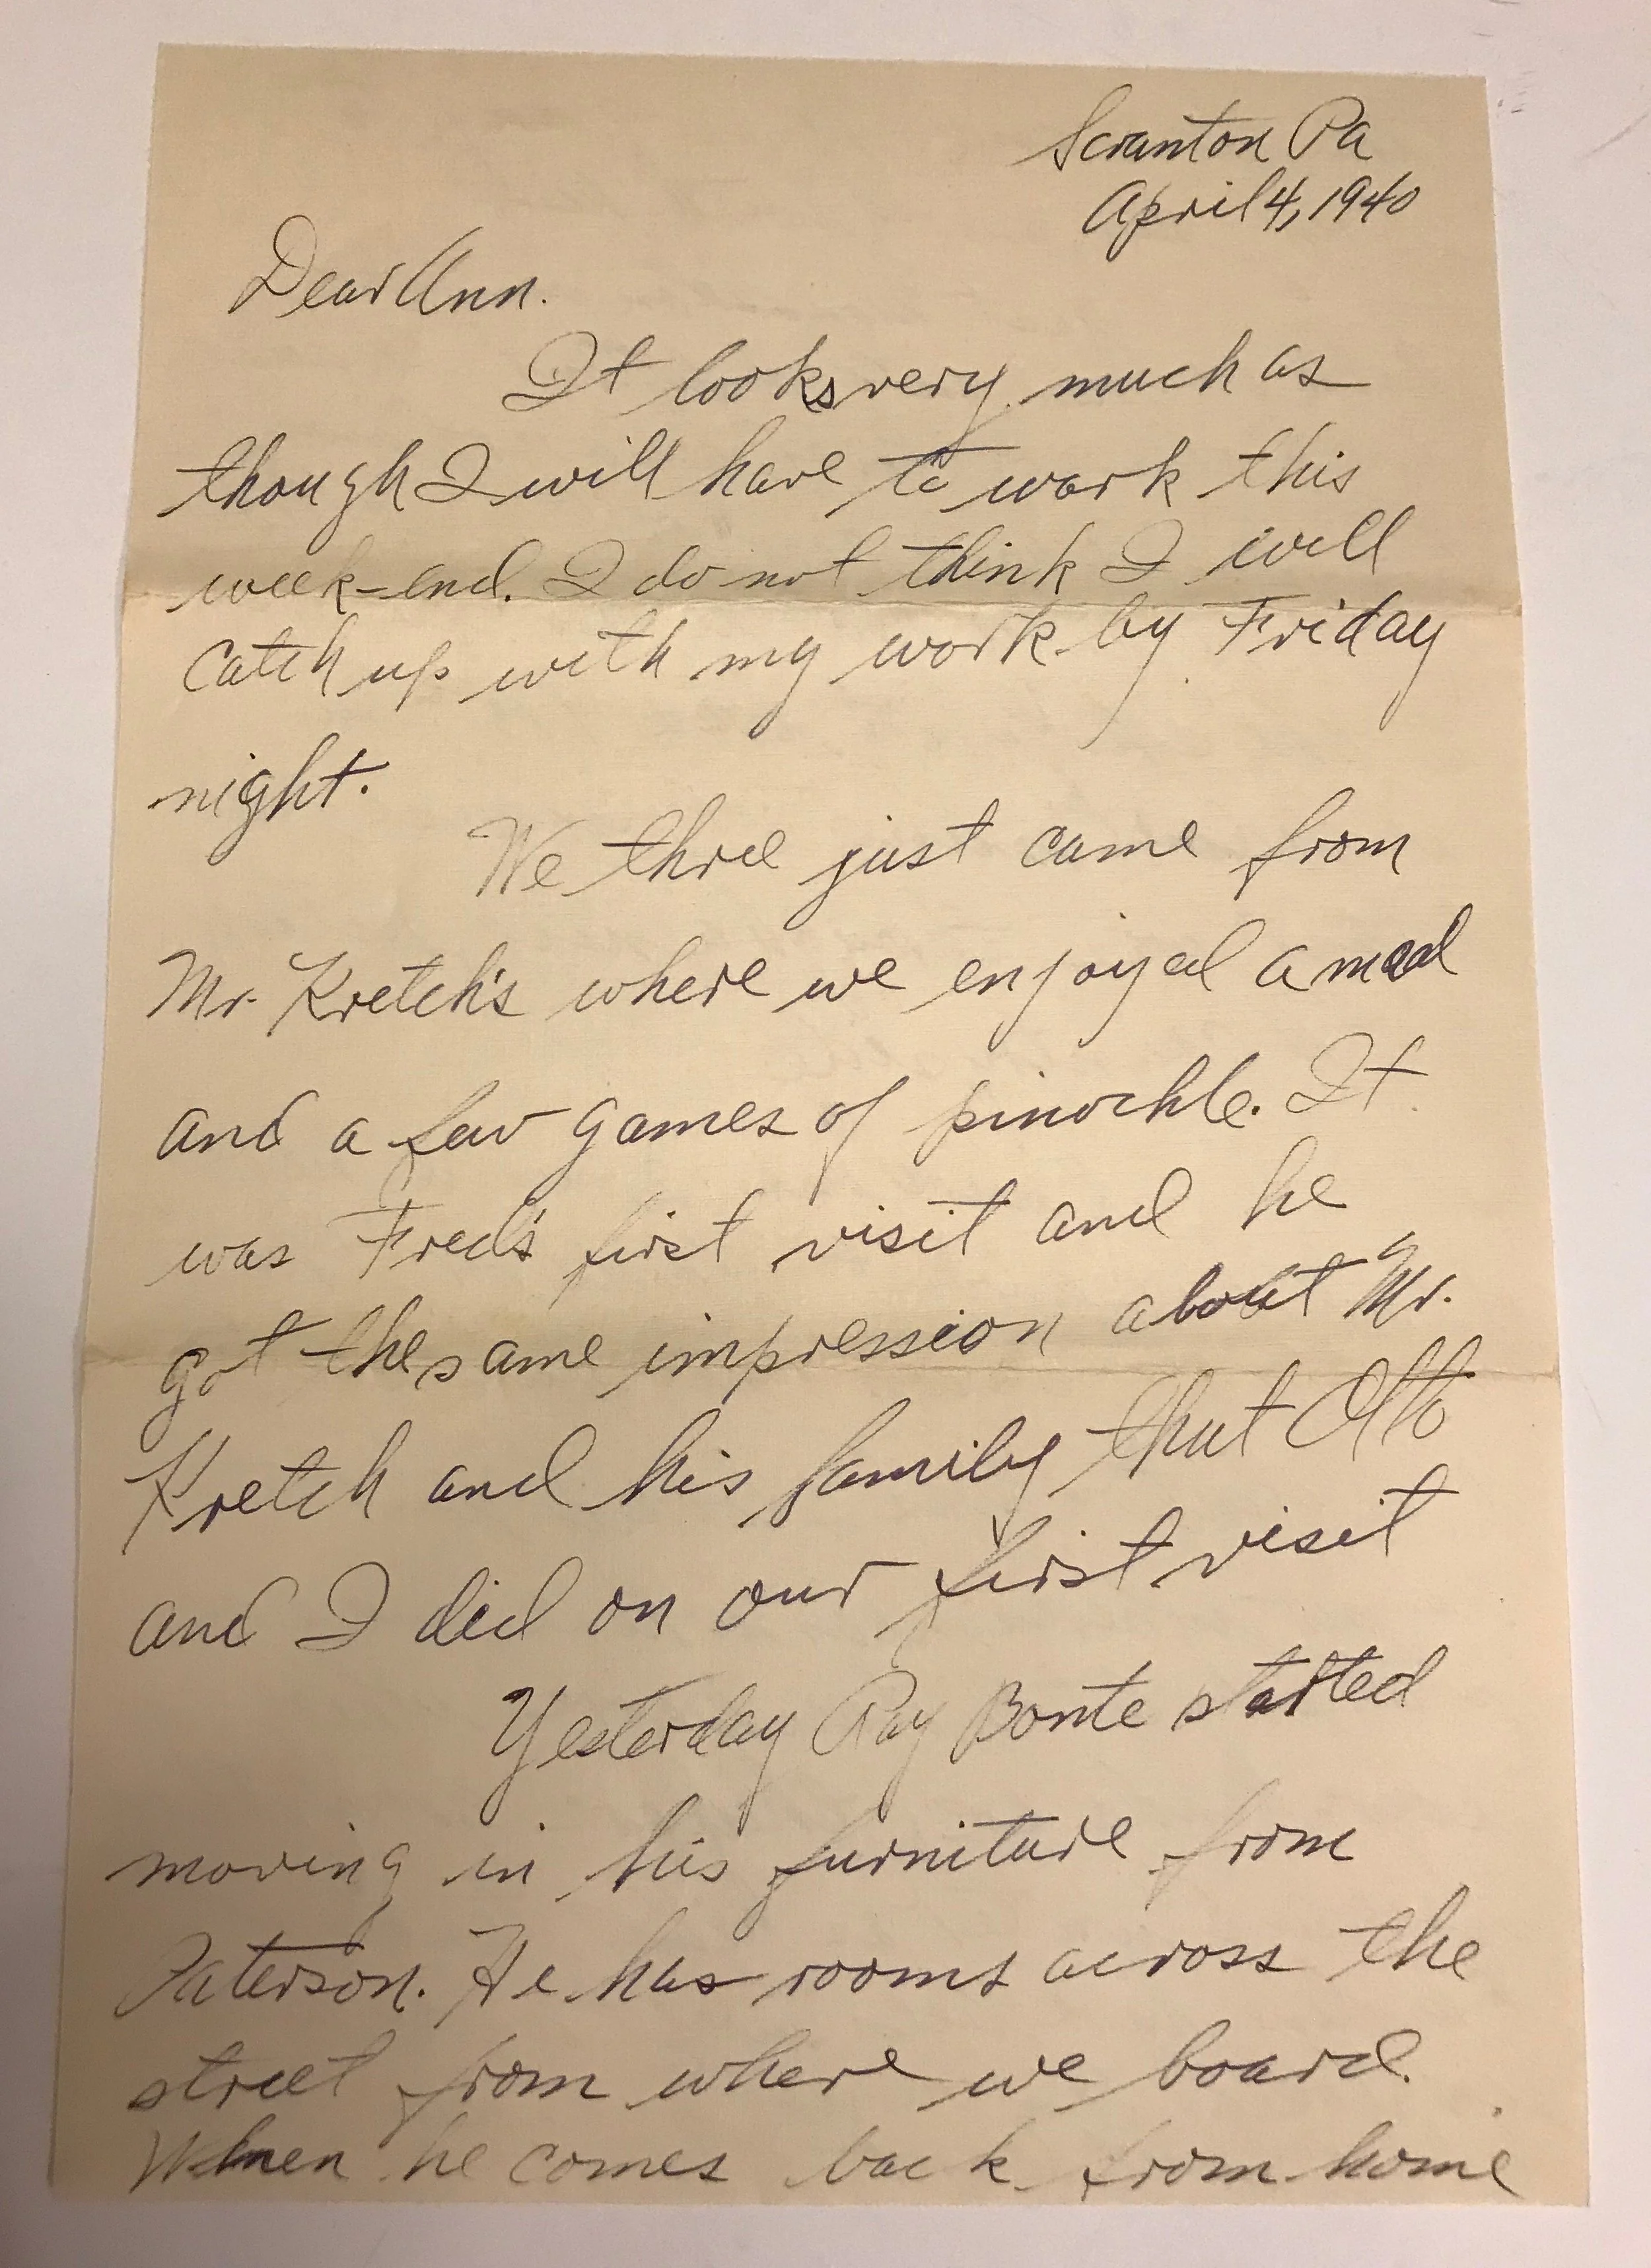 Scranton Pa
April 4, 1940
Dear Ann.
It looks very much as
though I will have to work this
week-end. I do not think I will
catch up with my work by Friday
night.
We three just came from
Mr. Kretch's where we enjoyed a meal
and a few games of pinochle. It
was Fred's first visit and he
got the same impression about Mr.
Kretch and his family that Otto
and I did on our first visit
Yesterday Ray Bonte started
moving in his furniture from
Paterson. He has rooms across the
street from where we board.
When he comes back from home